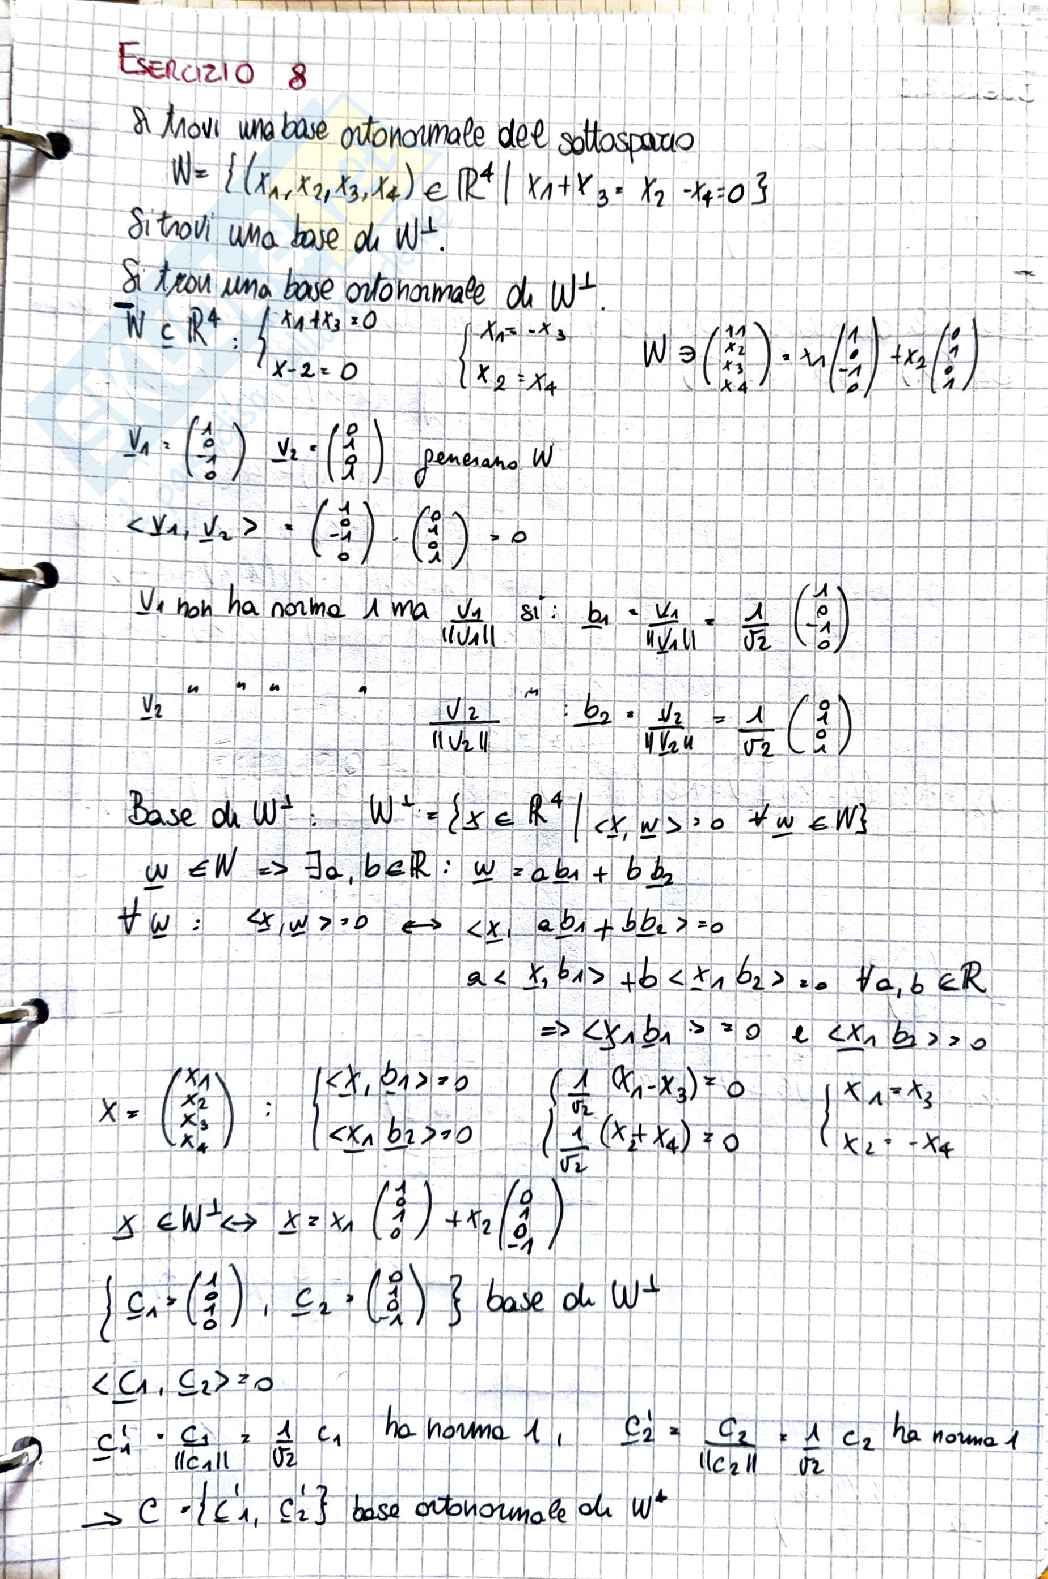 ESERCIZIO 8
Si trovi una base ortonormale del sottospazio
W = {(x1, x2, x3, x4) ∈ ℝ⁴ | x1 + x3 = x2 - x4 = 0}
Si trovi una base di W⊥.
Si trovi una base ortonormale di W⊥.
W ⊆ ℝ⁴ : { x1 + x3 = 0 ; x-2 = 0 { x1 = -x3 ; x2 = x4 W ∋ (x1 x2 x3 x4) = x1 (1 0 -1 0) + x2 (0 1 0 1)
v1 = (1 0 -1 0) v2 = (0 1 0 1) generano W
<v1, v2> = (1 0 -1 0) · (0 1 0 1) = 0
v1 non ha norma 1 ma v1/||v1|| si : b1 = v1/||v1|| = 1/√2 (1 0 -1 0)
v2 " " " " v2/||v2|| " : b2 = v2/||v2|| = 1/√2 (0 1 0 1)
Base di W⊥ : W⊥ = {x ∈ ℝ⁴ | <x, w> = 0 ∀ w ∈ W}
w ∈ W => ∃ a, b ∈ ℝ : w = a b1 + b b2
∀ w : <x, w> = 0 ↔ <x, a b1 + b b2> = 0
a <x, b1> + b <x, b2> = 0 ∀ a, b ∈ ℝ
=> <x, b1> = 0 e <x, b2> = 0
X = (x1 x2 x3 x4) : { <x, b1> = 0 ; <x, b2> = 0 { 1/√2 (x1 - x3) = 0 ; 1/√2 (x2 + x4) = 0 { x1 = x3 ; x2 = -x4
x ∈ W⊥ ↔ x = x1 (1 0 1 0) + x2 (0 1 0 -1)
{ c1 = (1 0 1 0), c2 = (0 1 0 -1) } base di W⊥
<c1, c2> = 0
c1' = c1/||c1|| = 1/√2 c1 ha norma 1, c2' = c2/||c2|| = 1/√2 c2 ha norma 1
→ C = {c1', c2'} base ortonormale di W⊥